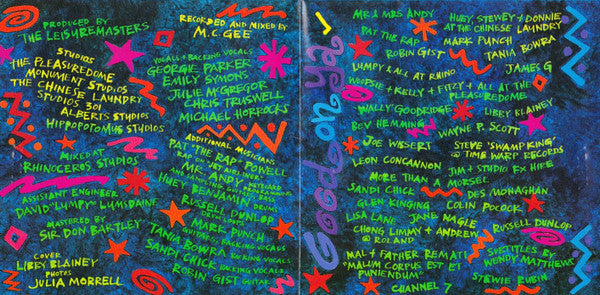 PRODUCED BY
THE LEISUREMASTERS
STUDIOS
THE PLEASUREDOME
MONUMENT STUDIOS
THE CHINESE LAUNDRY
STUDIOS 301
ALBERTS STUDIOS
HIPPOPOTAMUS STUDIOS
MIXED AT
RHINOCEROS STUDIOS
ASSISTANT ENGINEER
DAVID "LUMPY" LUMSDAINE
MASTERED BY
SIR DON BARTLEY
COVER
LIBBY BLAINEY
PHOTOS
JULIA MORRELL
RECORDED AND MIXED BY
M.C. GEE
VOCALS + BACKING VOCALS
GEORGE PARKER
EMILY SYMONS
JULIE McGREGOR
CHRIS TRUSWELL
MICHAEL HORROCKS
ADDITIONAL MUSICIANS
PAT "THE RAP" POWELL
RAP ON "JET AIRLINER"
MR. ANDY KEYBOARD
HUEY BENJAMIN DRUMS
RUSSELL DUNLOP
DRUMS
MARK PUNCH
GUITAR + BACKING VOCALS
TANIA BOWRA
BACKING VOCALS
SANDI CHICK BACKING VOCALS
ROBIN GIST GUITAR
Good on ya
MR + MRS ANDY
PAT THE RAP
ROBIN GIST
LUMPY + ALL AT RHINO
WOOPSIE + KELLY + FITZY + ALL AT THE
PLEASUREDOME
WALLY GOODRIDGE
BEV HEMMING
JOE WISSERT
LEON CONCANNON
MORE THAN A MORSEL
SANDI CHICK
GLEN KINGING
LISA LANE
JANE NAGLE
CHONG LIMMY + ANDREW
@ ROLAND
MAL + FATHER REMATI
"MALIM CORPUS EST ET
PUNIENDUM"
CHANNEL 7
HUEY, STEWEY + DONNIE
AT THE CHINESE LAUNDRY
MARK PUNCH
TANIA BOWRA
JAMES G
LIBBY BLAINEY
WAYNE P. SCOTT
STEVE 'SWAMP KING'
@ TIME WARP RECORDS
JIM + STUDIO RX HIRE
DES MONAGHAN
COLIN POCOCK
RUSSELL DUNLOP
SUBTITLES BY
WENDY MATTHEWS
STEWIE RUBIN